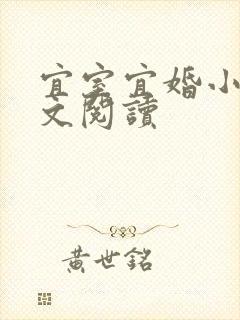 宜室宜婚小
文閱讀
黃世銘